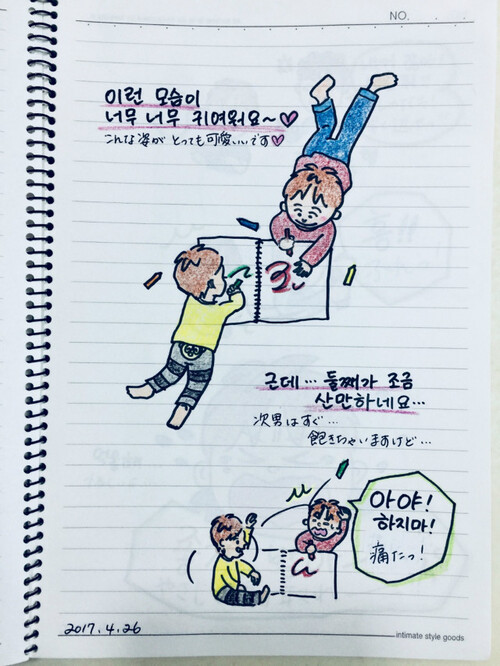 NO.
이런 모습이
너무 너무 귀여워요~♡
こんな姿が とっても可愛いいです♡
근데... 둘째가 조금
산만하네요...
次男はすぐ...
飽きちゃいますけど...
아야!
하지마!
痛だっ!
2017.4.26
intimate style goods